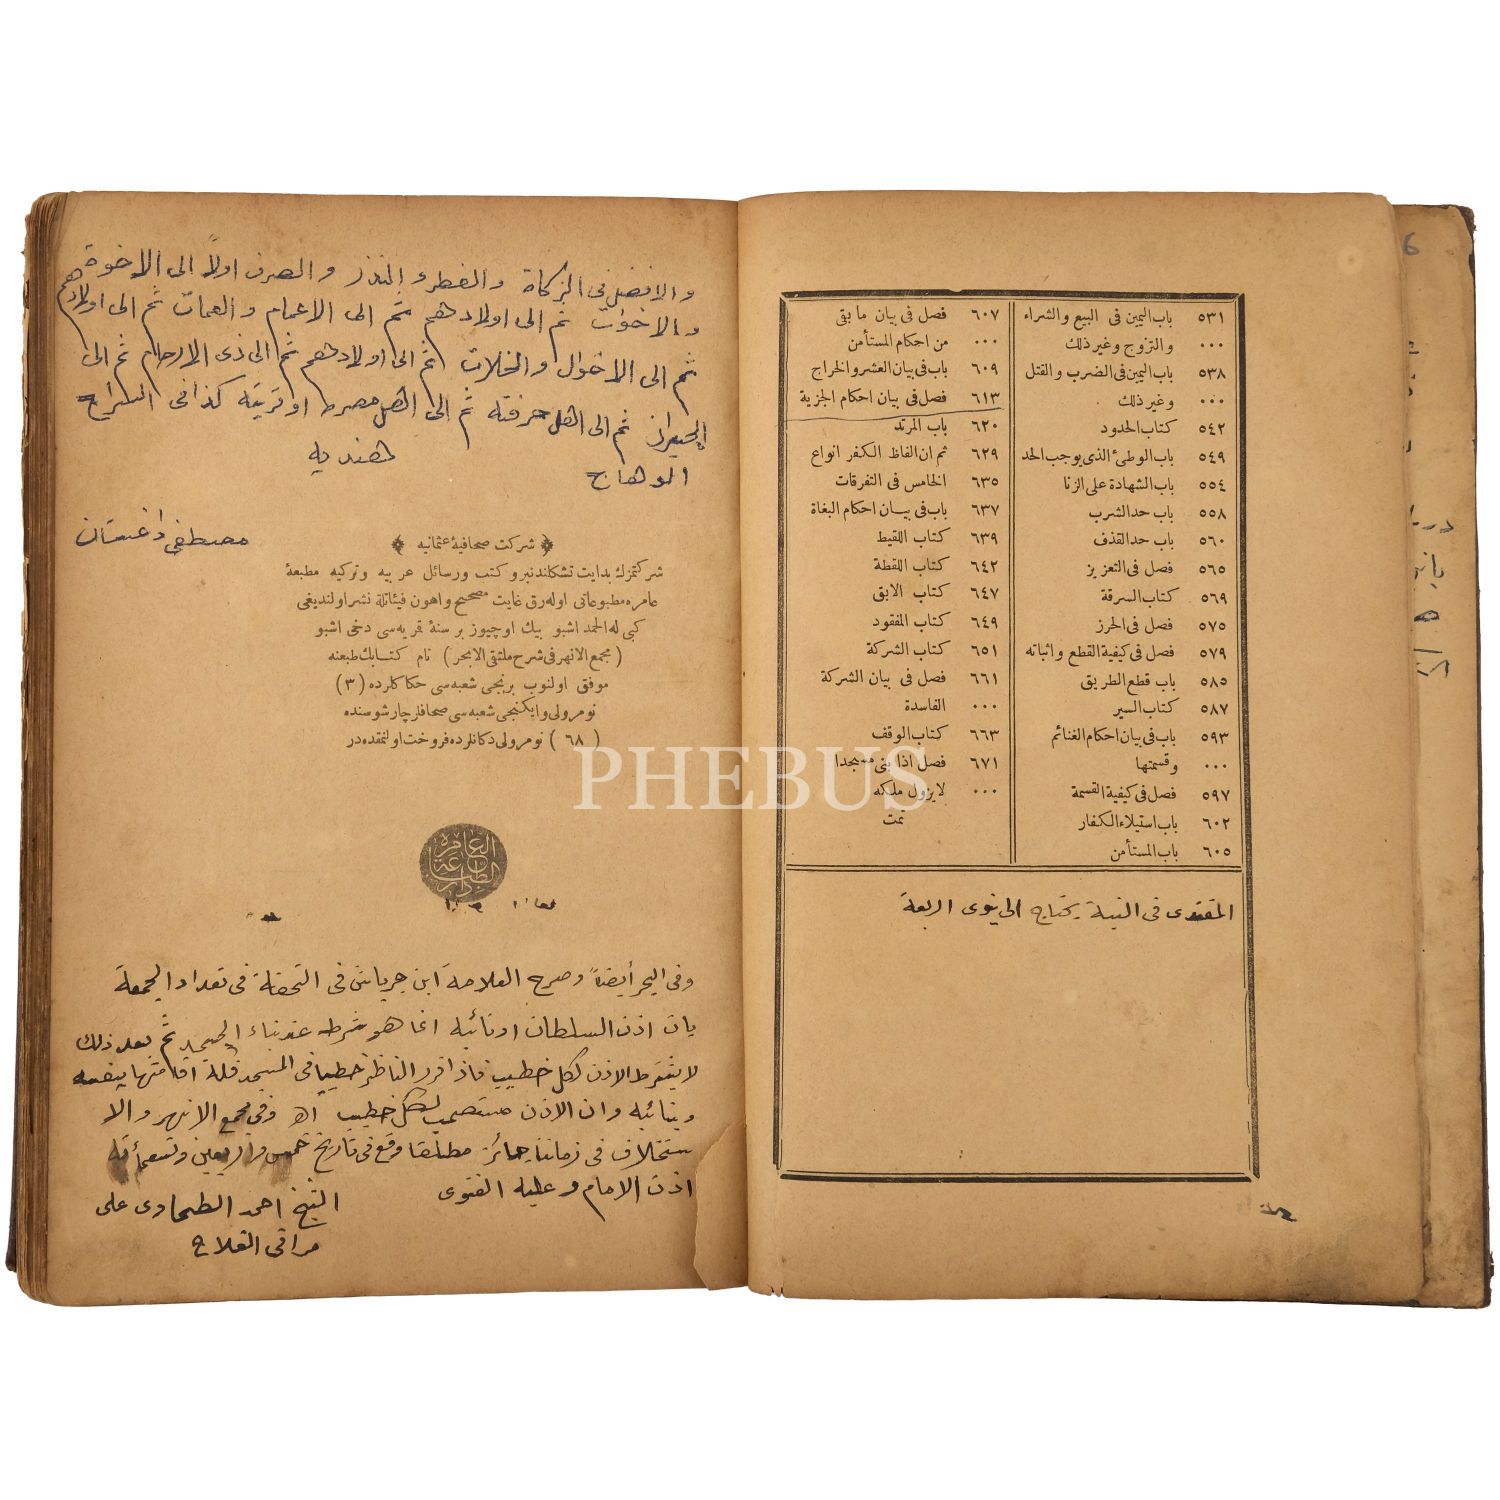 باب اليمين فى البيع والشراء ٥٣١
والتزوج وغير ذلك ٠٠٠
باب اليمين فى الضرب والقتل ٥٣٨
وغير ذلك ٠٠٠
كتاب الحدود ٥٤٢
باب الوطئ الذى يوجب الحد ٥٤٩
باب الشهادة على الزنا ٥٥٤
باب حد الشرب ٥٥٨
باب حد القذف ٥٦٠
فصل فى التعزيز ٥٦٥
كتاب السرقة ٥٦٩
فصل فى الحرز ٥٧٥
فصل فى كيفية القطع واثباته ٥٧٩
باب قطع الطريق ٥٨٥
كتاب السير ٥٨٧
باب فى بيان احكام الغنائم ٥٩٣
وقسمتها ٠٠٠
فصل فى كيفية القسمة ٥٩٧
باب استيلاء الكفار ٦٠٢
باب المستأمن ٦٠٥
فصل فى بيان ما بقى ٦٠٧
من احكام المستأمن ٠٠٠
باب فى بيان العشر والخراج ٦٠٩
فصل فى بيان احكام الجزية ٦١٣
باب المرتد ٦٢٠
ثم ان الفاظ الكفر انواع ٦٢٩
الخامس فى التفرقات ٦٣٥
باب فى بيان احكام البغاة ٦٣٧
كتاب اللقيط ٦٣٩
كتاب اللقطة ٦٤٢
كتاب الابق ٦٤٧
كتاب المفقود ٦٤٩
كتاب الشركة ٦٥١
فصل فى بيان الشركة ٦٦١
الفاسدة ٠٠٠
كتاب الوقف ٦٦٣
فصل اذا بنى مسجدا ٦٧١
لا يزول ملكه ٠٠٠
تمت
المقتدى فى النية يحتاج الى نوى اربعة
والافضل فى الزكاة والفطر والنذر والصرف اولاً الى الاخوة
والاخوات ثم الى اولادهم ثم الى الاعمام والعمات ثم الى اولادهم
ثم الى الاخوال والخلات ثم الى اولادهم ثم الى ذى الارحام ثم الى
الجيران ثم الى اهل حرفته ثم الى اهل مصره او قريته كذا فى السراج
الوهاج هنديه
مصطفى داغستان
شركت صحافيۀ عثمانيه
شركتمزك بدايت تشكلندنبرو كتب ورسائل عربيه وتركيه مطبعۀ
عامره مطبوعاتى اوله رق غايت مصححيح واهون فيئاتله نشر اولنديغى
كبى له الحمد اشبو بيك اوچيوز بر سنۀ قمريه سى دخى اشبو
( مجمع الانهر فى شرح ملتقى الابحر ) نام كتابك طبعنه
موفق اولنوب برنجى شعبه سى حكاكلرده ( ٣ )
نومرولى وايكنجى شعبه سى صحافلر چارشوسنده
( ٦٨ ) نومرولى دكانلرده فروخت اولنمقده در
دار الطباعة العامره
وفى البحر أيضاً وصرح العلامة ابن جرباش فى التحفة فى تعداد الجمعة
بان اذن السلطان او نائبه انما هو شرط عند بناء المسجد ثم بعد ذلك
لا يشترط الاذن لكل خطيب فاذا قرر الناظر خطيبا فى المسجد فله اقامتها بنفسه
وبنائبه وان الاذن مستصحب لكل خطيب اه وفى مجمع الانهر والا
ستخلاف فى زماننا جائز مطلقا وقع فى تاريخ خمس واربعين وتسعمأئة
اذن الامام وعليه الفتوى
الشيخ احمد الطحاوى على
مراقى الفلاح
PHEBUS